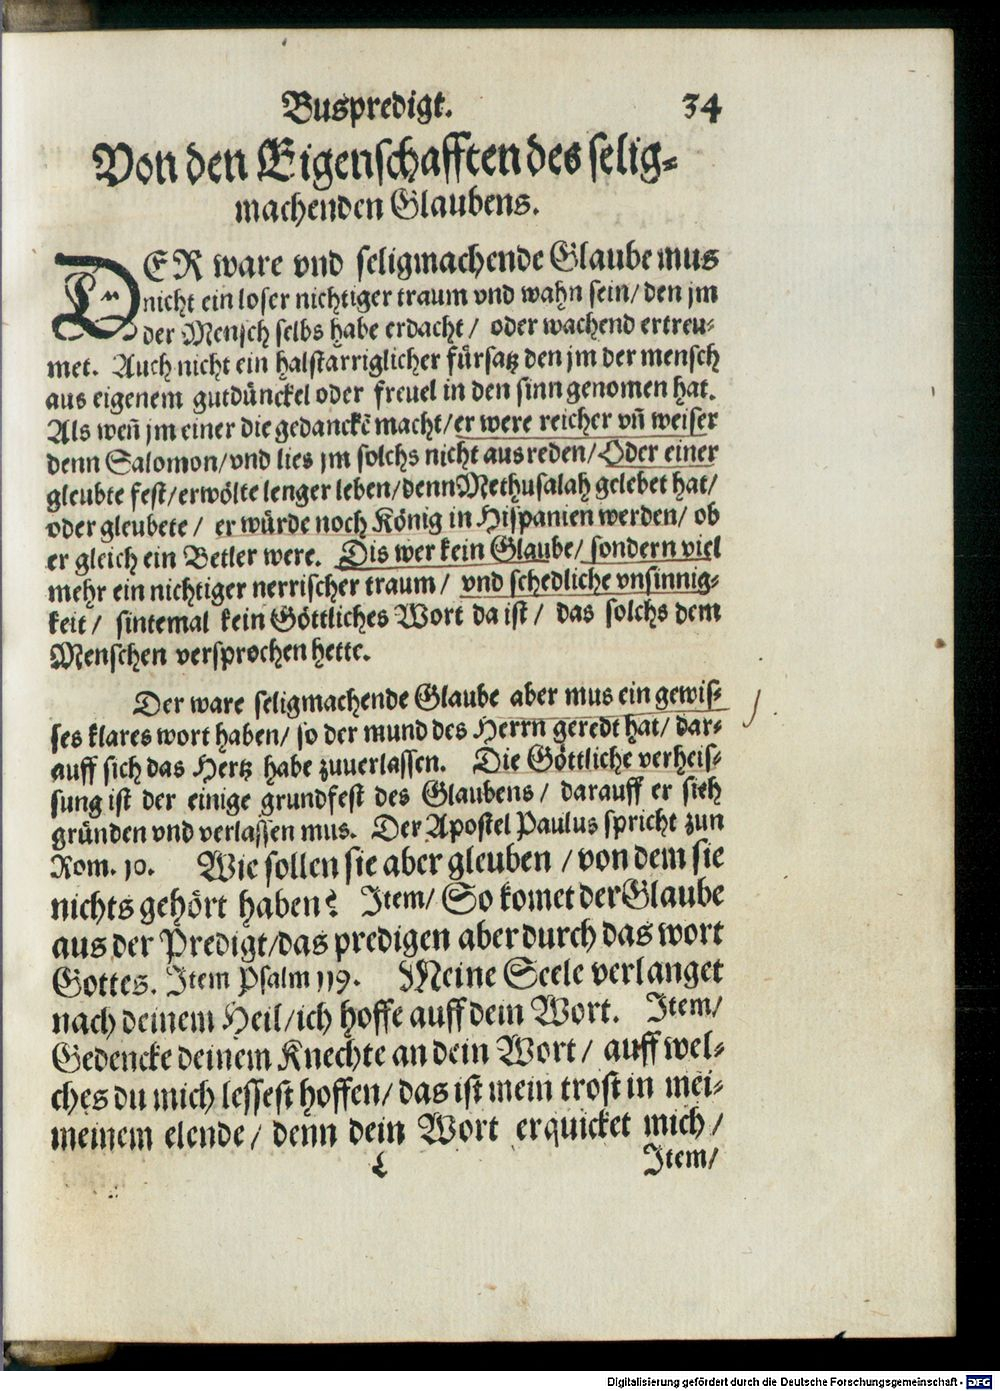 Buspredigt. 34
Von den Eigenschafften des selig-
machenden Glaubens.
DER ware vnd seligmachende Glaube mus
nicht ein loser nichtiger traum vnd wahn sein/ den jm
der Mensch selbs habe erdacht/ oder wachend ertreu-
met. Auch nicht ein halstarriglicher fürsatz den jm der mensch
aus eigenem gutdünckel oder freuel in den sinn genomen hat.
Als weñ jm einer die gedanckẽ macht/ er were reicher vñ weiser
denn Salomon/ vnd lies jm solchs nicht ausreden/ Oder einer
gleubte fest/ er wölte lenger leben/ denn Methusalah gelebet hat/
oder gleubete/ er würde noch König in Hispanien werden/ ob
er gleich ein Betler were. Dis wer kein Glaube/ sondern viel
mehr ein nichtiger nerrischer traum/ vnd schedliche vnsinnig-
keit/ sintemal kein Göttliches Wort da ist/ das solchs dem
Menschen versprochen hette.
Der ware seligmachende Glaube aber mus ein gewis-
ses klares wort haben/ so der mund des Herrn geredt hat/ dar-
auff sich das Hertz habe zuuerlassen. Die Göttliche verheis-
sung ist der einige grundfest des Glaubens/ darauff er sich
gründen vnd verlassen mus. Der Apostel Paulus spricht zun
Rom. 10. Wie sollen sie aber gleuben/ von dem sie
nichts gehört haben? Item/ So komet der Glaube
aus der Predigt/ das predigen aber durch das wort
Gottes. Item Psalm 119. Meine Seele verlanget
nach deinem Heil/ ich hoffe auff dein Wort. Item/
Gedencke deinem Knechte an dein Wort/ auff wel-
ches du mich lessest hoffen/ das ist mein trost in mei-
meinem elende/ denn dein Wort erquicket mich/
L Item/
Digitalisierung gefördert durch die Deutsche Forschungsgemeinschaft - DFG